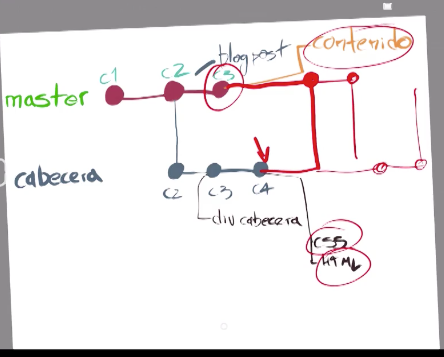 blogpost contenido
c1 c2 c3
master
cabecera
c2 c3 c4
div cabecera
CSS
HTML